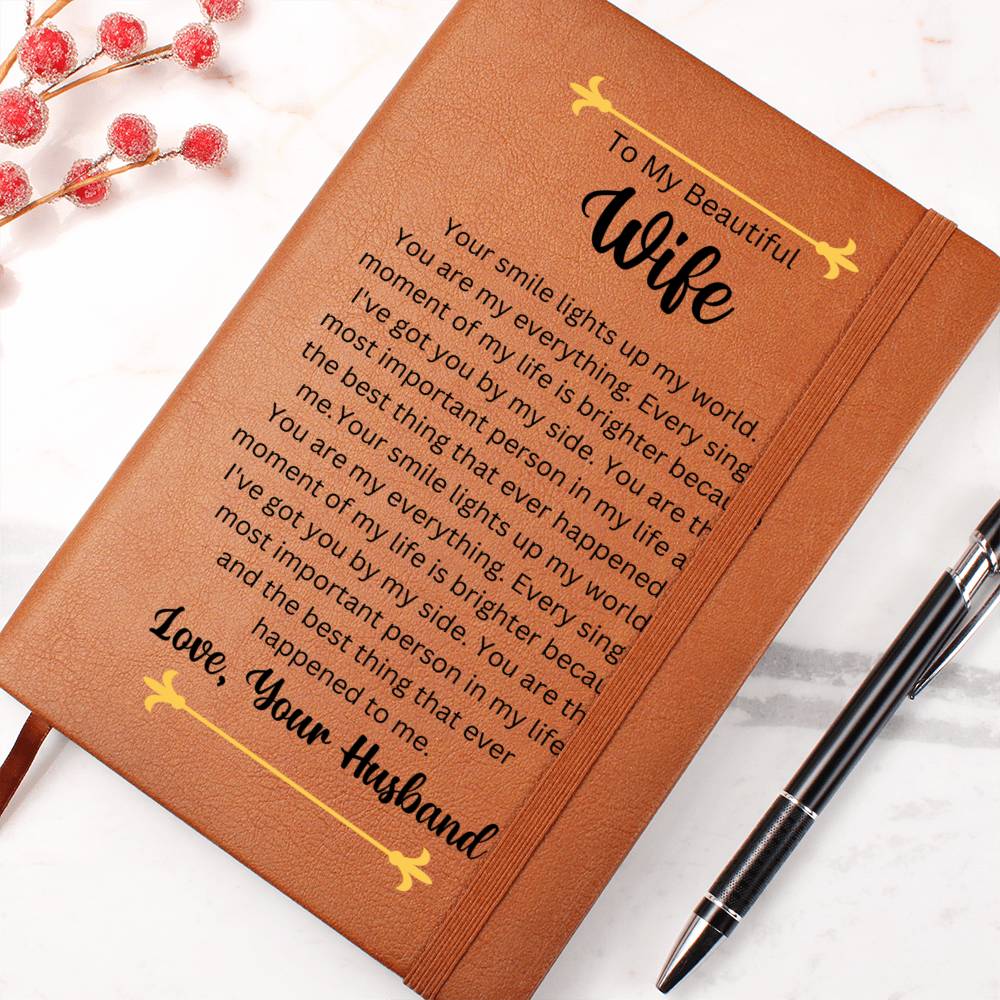 To My Beautiful
Wife
Your smile lights up my world.
You are my everything. Every sing
moment of my life is brighter becau
I've got you by my side. You are th
most important person in my life a
the best thing that ever happened
me.Your smile lights up my world
You are my everything. Every sing
moment of my life is brighter becau
I've got you by my side. You are th
most important person in my life
and the best thing that ever
happened to me.
Love, Your Husband